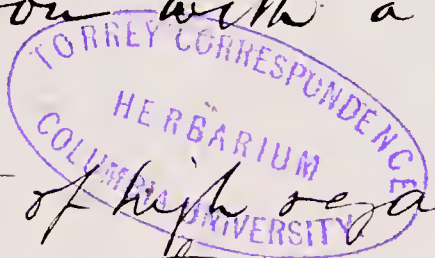 on with a
TORREY CORRESPONDENCE
HERBARIUM
COLUMBIA UNIVERSITY
of high rega